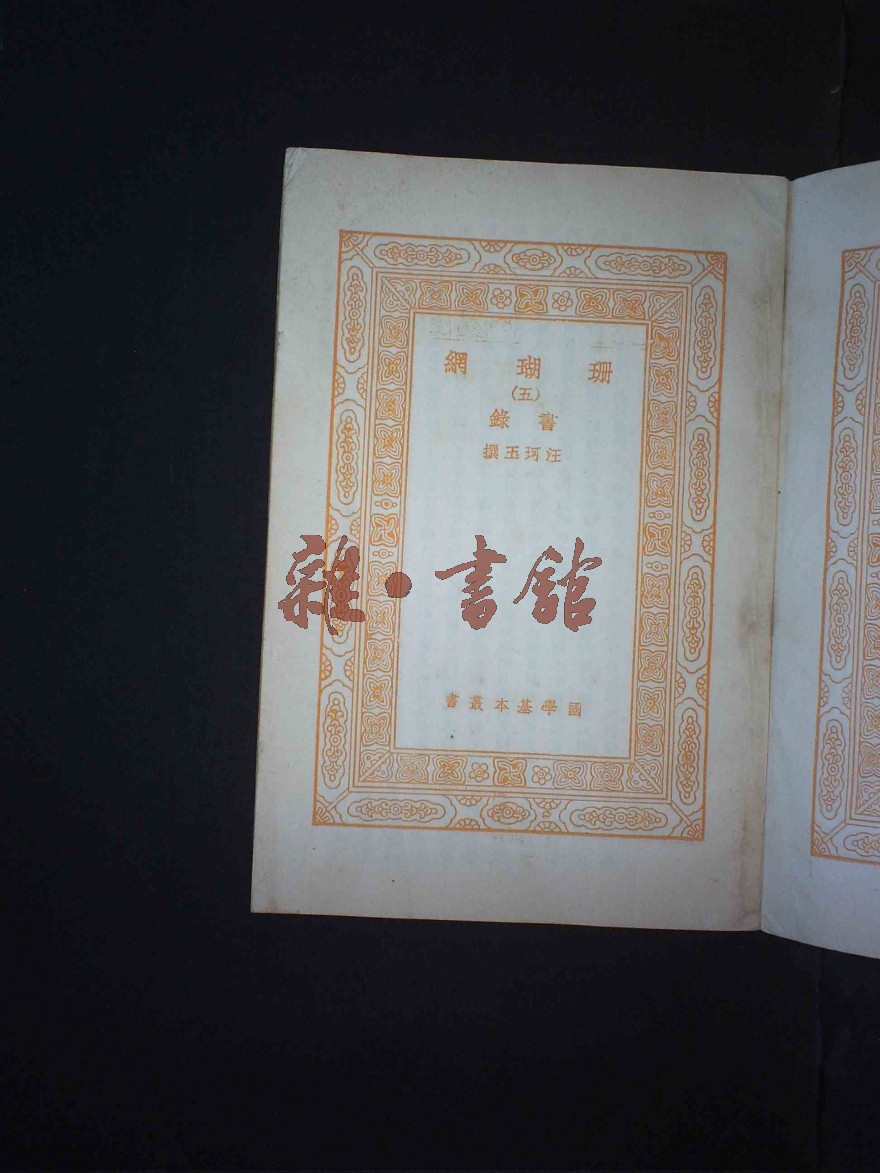 珊瑚網
(五)
書錄
汪珂玉撰
雜·書館
國學基本叢書